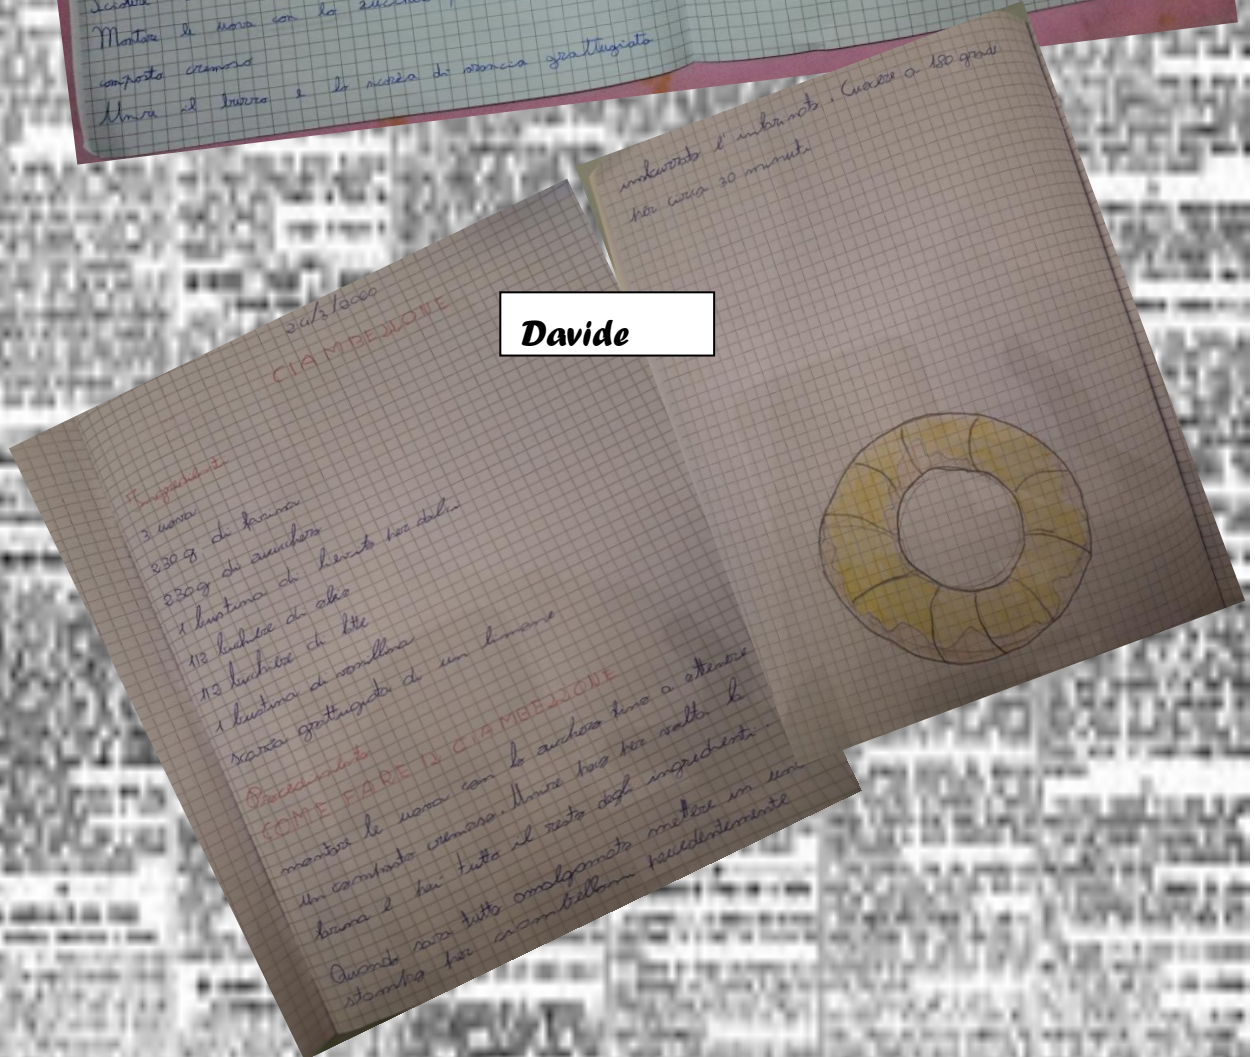 Montare le uova con lo zucchero
composto cremoso
Unire il burro e la scorza di arancia grattugiata
24/3/2020
CIAMBELLONE
Ingredienti
3 uova
230g di farina
230g di zucchero
1 bustina di lievito per dolci
1/2 bicchiere di olio
1/2 bicchiere di latte
1 bustina di vanillina
scorza grattugiata di un limone
Procedimento
COME FARE IL CIAMBELLONE
montare le uova con lo zucchero fino a ottenere
un composto cremoso. Unire poco per volta la
farina e poi tutto il resto degli ingredienti.
Quando sarà tutto amalgamato mettere in uno
stampo per ciambellone precedentemente
imburrato e infarinato. Cuocere a 180 gradi
per circa 30 minuti
Davide